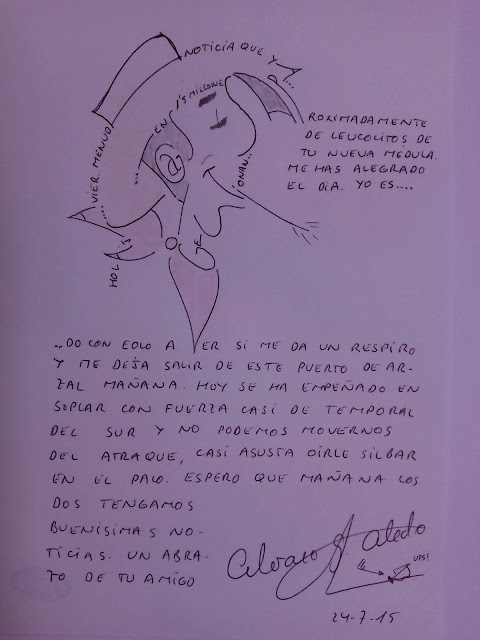 HOLA
VIER. MENUD
NOTICIA QUE Y
EN
1'5 MILLONE
@
IONAN..
GE
ROXIMADAMENTE
DE LEUCOLITOS DE
TU NUEVA MÉDULA.
ME HAS ALEGRADO
EL DÍA. YO ES....
..DO CON EOLO A VER SI ME DA UN RESPIRO
Y ME DEJA SALIR DE ESTE PUERTO DE AR-
ZAL MAÑANA. HOY SE HA EMPEÑADO EN
SOPLAR CON FUERZA CASI DE TEMPORAL
DEL SUR Y NO PODEMOS MOVERNOS
DEL ATRAQUE, CASI ASUSTA OIRLE SILBAR
EN EL PALO. ESPERO QUE MAÑANA LOS
DOS TENGAMOS
BUENÍSIMAS NO-
TICIAS. UN ABRA-
ZO DE TU AMIGO
Alvaro J. Aledo
UPS!
24-7-15